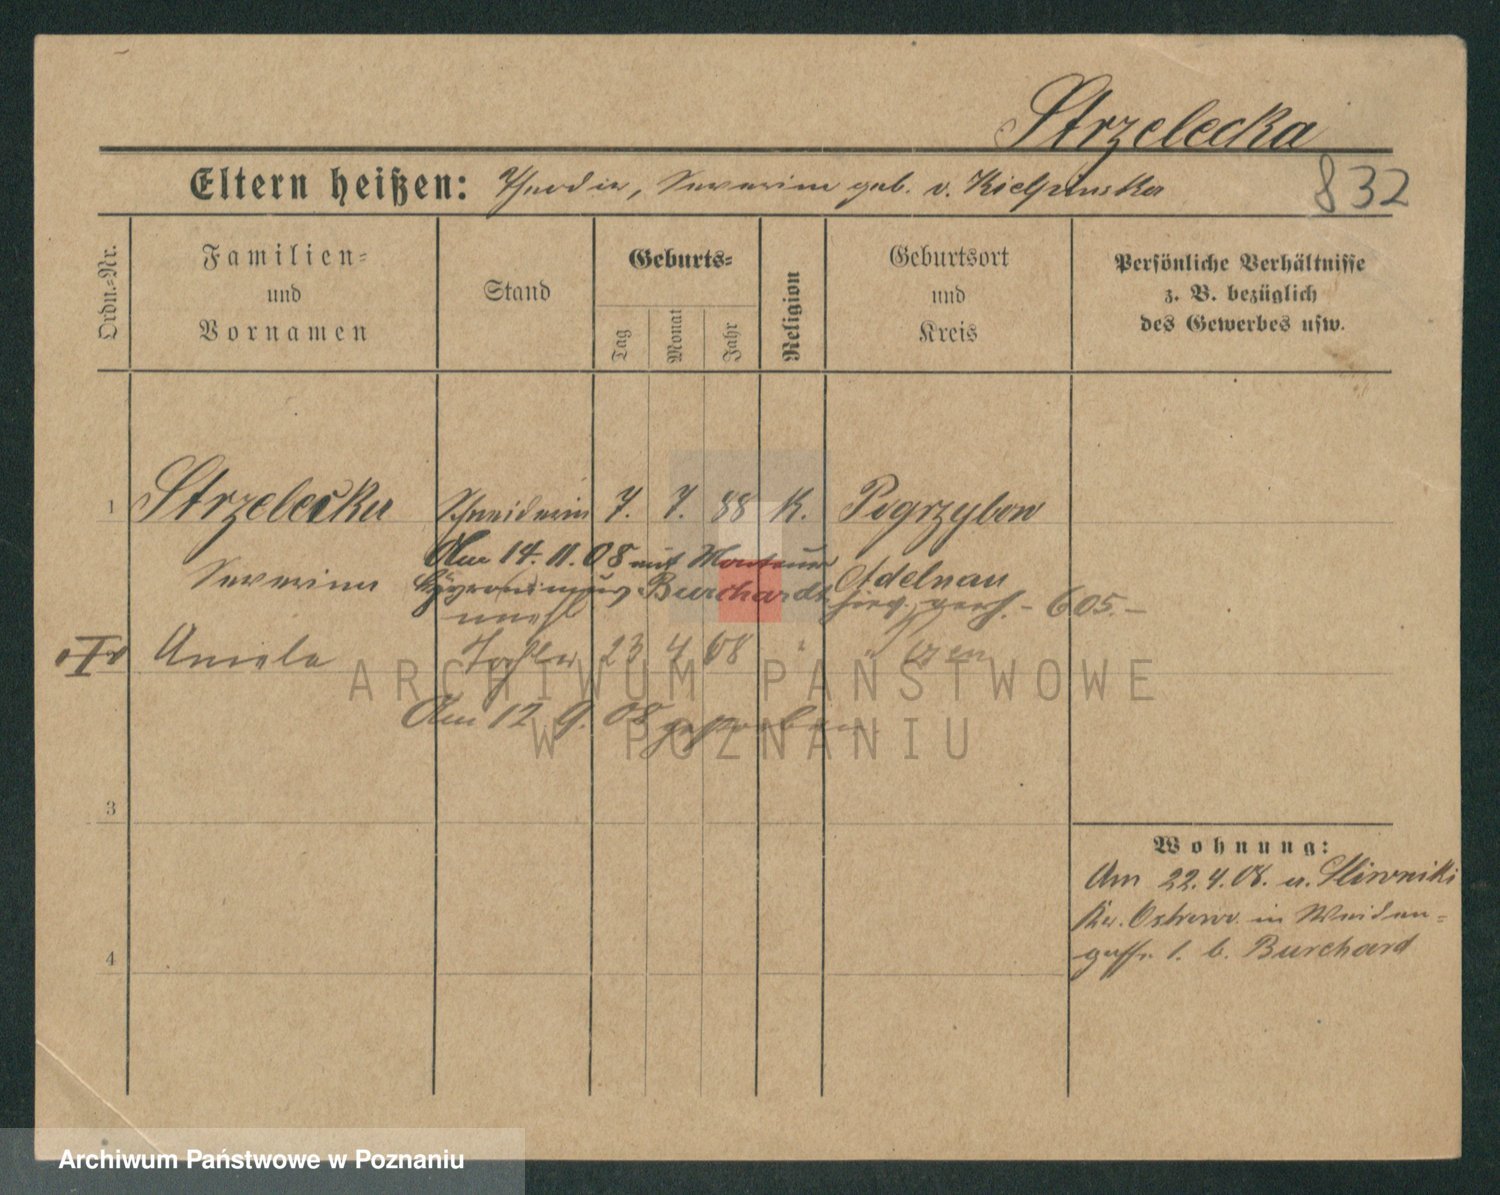 Strzelecka
Eltern heißen: Theodor, Severine geb. v. Kielpinska
832
Ordn.-Nr.
Familien-
und
Vornamen
Stand
Geburts-
Tag
Monat
Jahr
Religion
Geburtsort
und
Kreis
Persönliche Verhältnisse
z. B. bezüglich
des Gewerbes usw.
1 Strzelecka Schneiderin 7. 7. 88 K. Pogrzybow
Am 14.11.08 mit Monteur
Severina Burchardt Adelnau
605.-
Aniela Tochter 23 4 08 "
Am 12 9. 08 gestorben
3
4
Wohnung:
Am 22.4.08. v. Sliwniki
Kr. Ostrowo in Weiden-
gasse 1. b. Burchard
ARCHIWUM PAŃSTWOWE
W POZNANIU
Archiwum Państwowe w Poznaniu